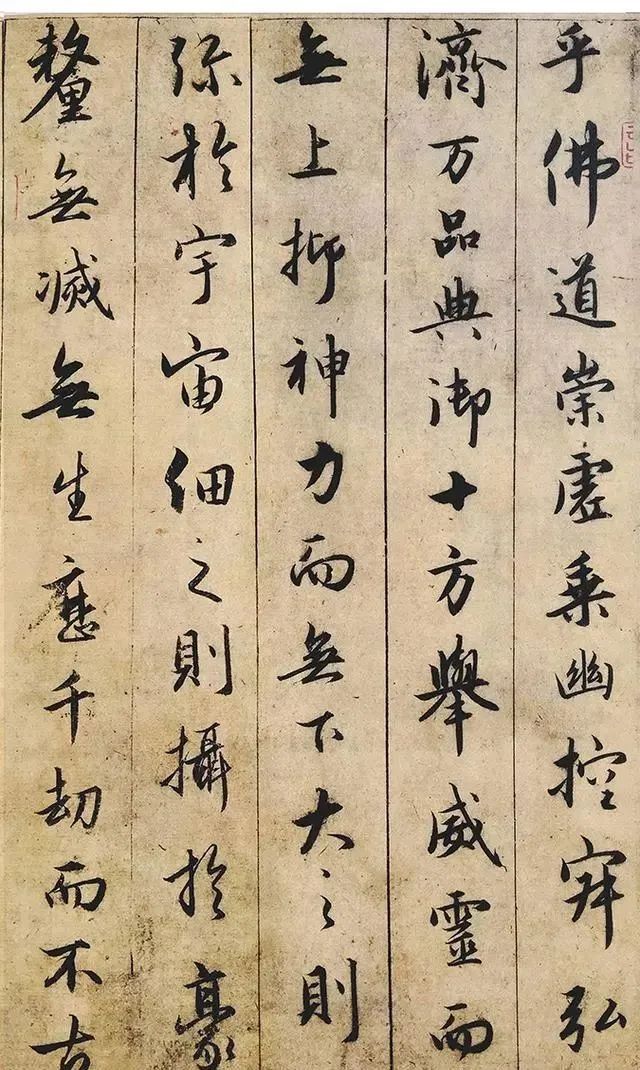 乎佛道崇虛乗幽控寂弘
濟万品典御十方舉威靈而
無上抑神力而無下大之則
弥於宇宙細之則攝於豪
釐無滅無生歷千劫而不古